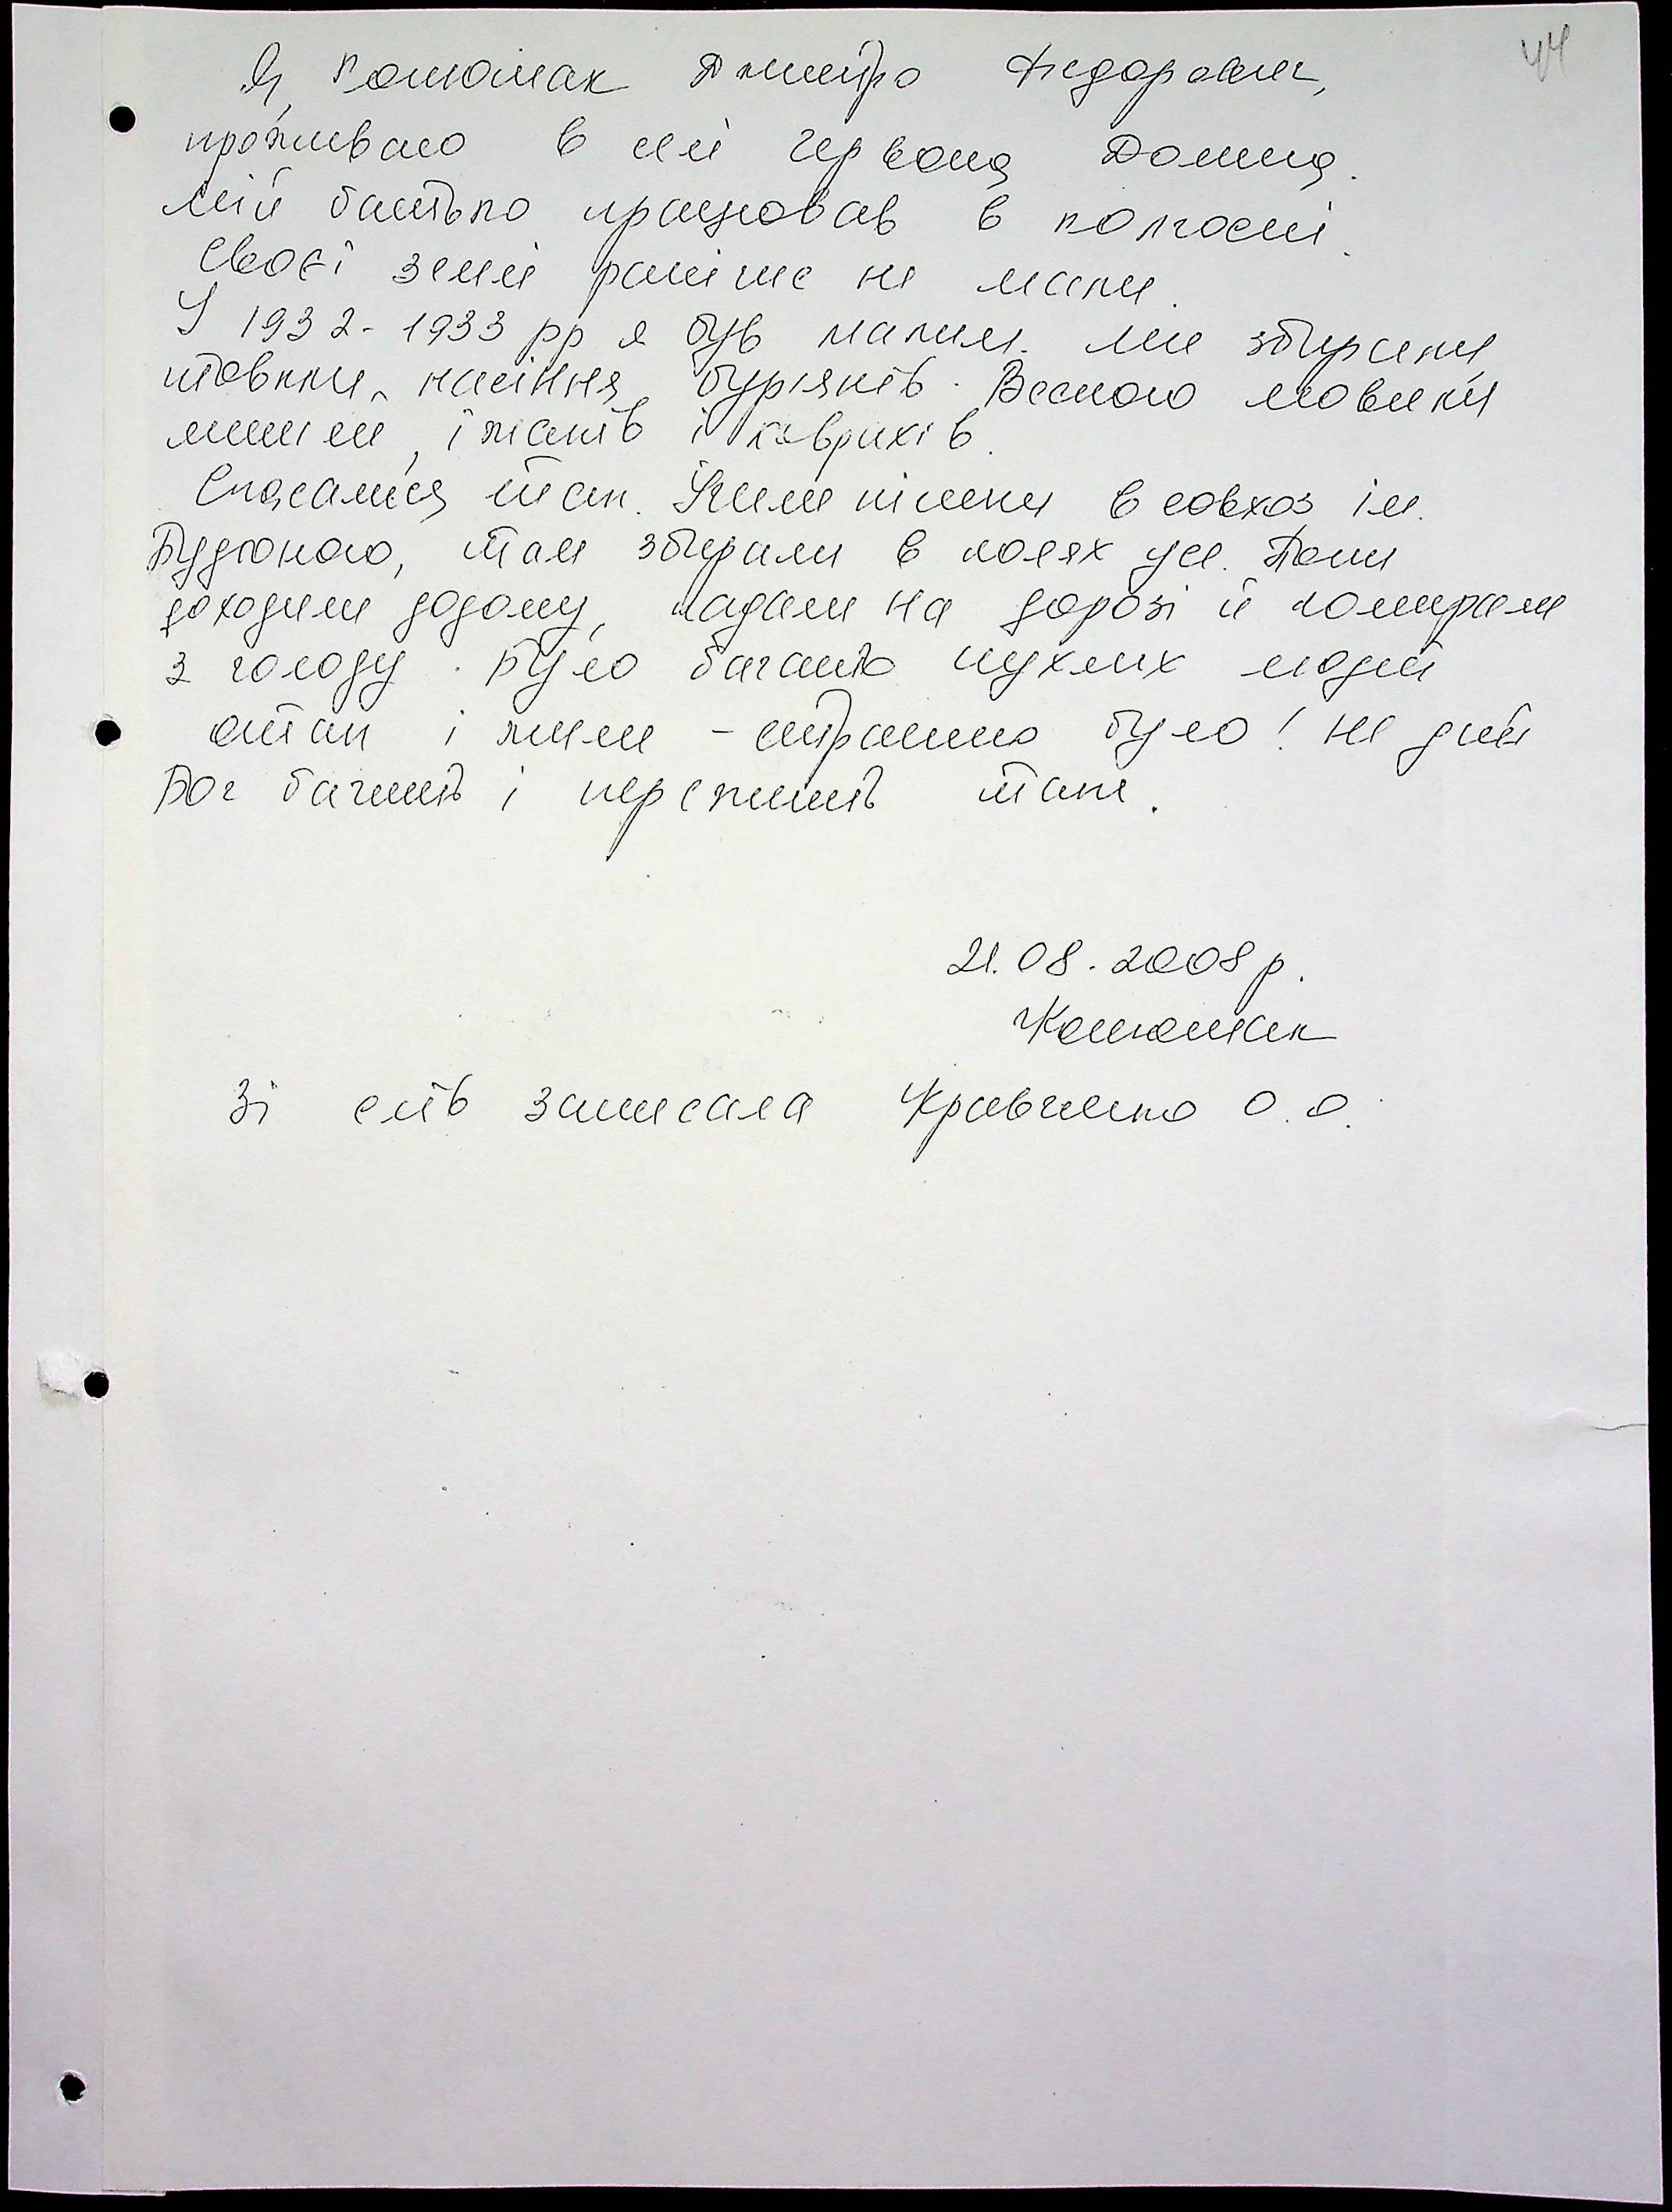 44
Я, Конюшак Дмитро Федорович,
проживаю в с-щі Червона Долина.
Мій батько працював в колгоспі.
Своєї землі раніше не мали.
У 1932-1933 рр я був малим. Ми збирали
насіння бур'янів. Весною ловили
мишей, їжаків і ховрахів.
Спасалися так. Інши пішли в совхоз ім.
Будьоного, там збирали в полях усе. Поки
доходили додому, падали на дорозі й помирали
з голоду. Було багато пухлих людей
отак і жили - страшно було! Не дай
Бог бачить і пережить таке.
21.08.2008 р.
Конюшак
Зі слів записала Кравченко О.О.